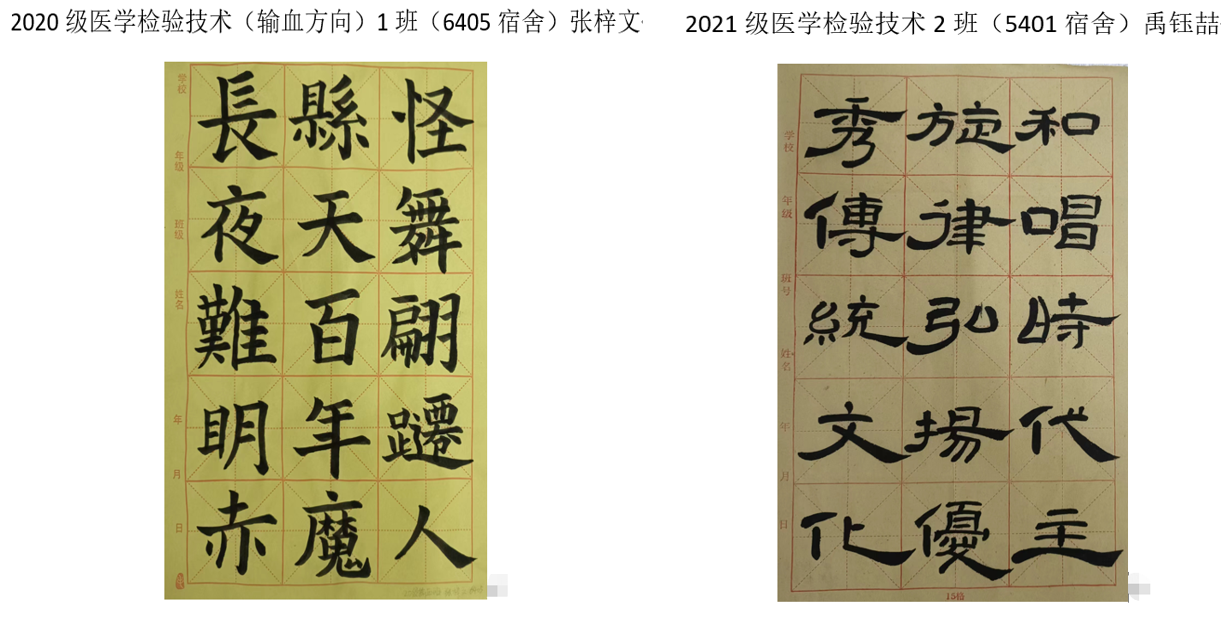 2020 级医学检验技术（输血方向）1 班（6405 宿舍）张梓文
学校
年级
班级
姓名
年
月
日
長夜難明赤
縣天百年魔
怪舞翩躚人
2021 级医学检验技术 2 班（5401 宿舍）禹钰喆
和唱時代主
旋律弘揚優
秀傳統文化
学校
年级
班号
姓名
年
月
日
15格